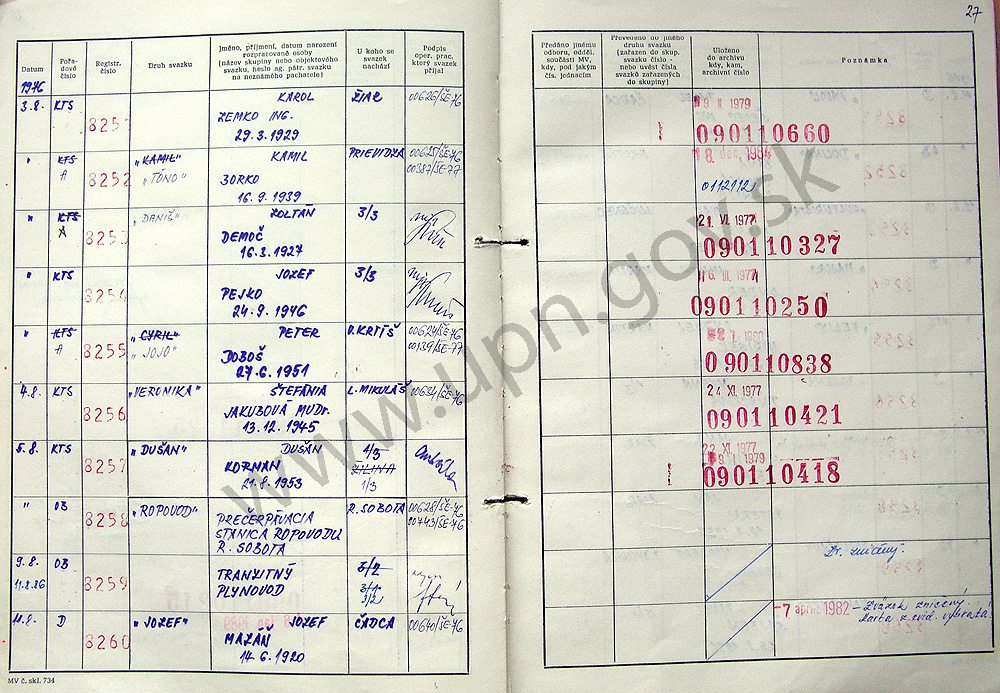 27
Datum
Pořadové číslo
Registr. číslo
Druh svazku
Jméno, příjmení, datum narození rozpracované osoby (název skupiny nebo objektového svazku, heslo ag. pátr. svazku na neznámého pachatele)
U koho se svazek nachází
Podpis oper. prac. který svazek přijal
Předáno jinému odboru, odděl. součásti MV, kdy, pod jakým čís. jednacím
Převedeno do jiného druhu svazku (zařazen do skup. svazku číslo - nebo uvést čísla svazků zařazených do skupiny)
Uloženo do archivu kdy, kam, archivní číslo
Poznámka
1976
3.8. KTS 8251 KAROL ŽIAR 00626/ŠE-76
ZEMKO ING.
29.3.1929
9 II 1979
090110660
" KTS 8252 „KAMIL" KAMIL PRIEVIDZA 00625/ŠE-76
A „TÓNO" ZORKO 00387/ŠE-77
16.9.1939
0112112
" KTS 8253 „DANIŠ" ZOLTÁN 3/3
A DEMOČ
16.3.1927
21 VI. 1977
090110327
" KTS 8254 JOZEF 3/3
PEJKO
24.9.1946
090110250
" KTS 8255 „CYRIL" PETER V. KRTÍŠ 00624/ŠE-76
A „JOJO" DOBOŠ 00139/ŠE-77
27.6.1951
090110838
4.8. KTS 8256 „VERONIKA" ŠTEFÁNIA L. MIKULÁŠ 00634/ŠE-76
JAKUBOVÁ MUDr.
13.12.1945
24 XI. 1977
090110421
5.8. KTS 8257 „DUŠAN" DUŠAN 1/3
KORMAN ŽILINA
21.8.1953 1/3
22 XI. 1977
9 I 1979
090110418
" OB 8258 „ROPOVOD" PREČERPÁVACIA R. SOBOTA 00628/ŠE-76
STANICA ROPOVODU 00443/ŠE-76
R. SOBOTA
9.8. OB 8259 TRANZITNÝ 3/2
11.8.86 PLYNOVOD 3/1
3/2
Dr. zničený.
11.8. D 8260 „JOZEF" JOZEF ČADCA 00640/ŠE-76
MAZÁŇ
14.6.1920
-7 apríl 1982 - Zväzok zničený
karta z evid. vybratá
MV č. skl. 734
www.upn.gov.sk